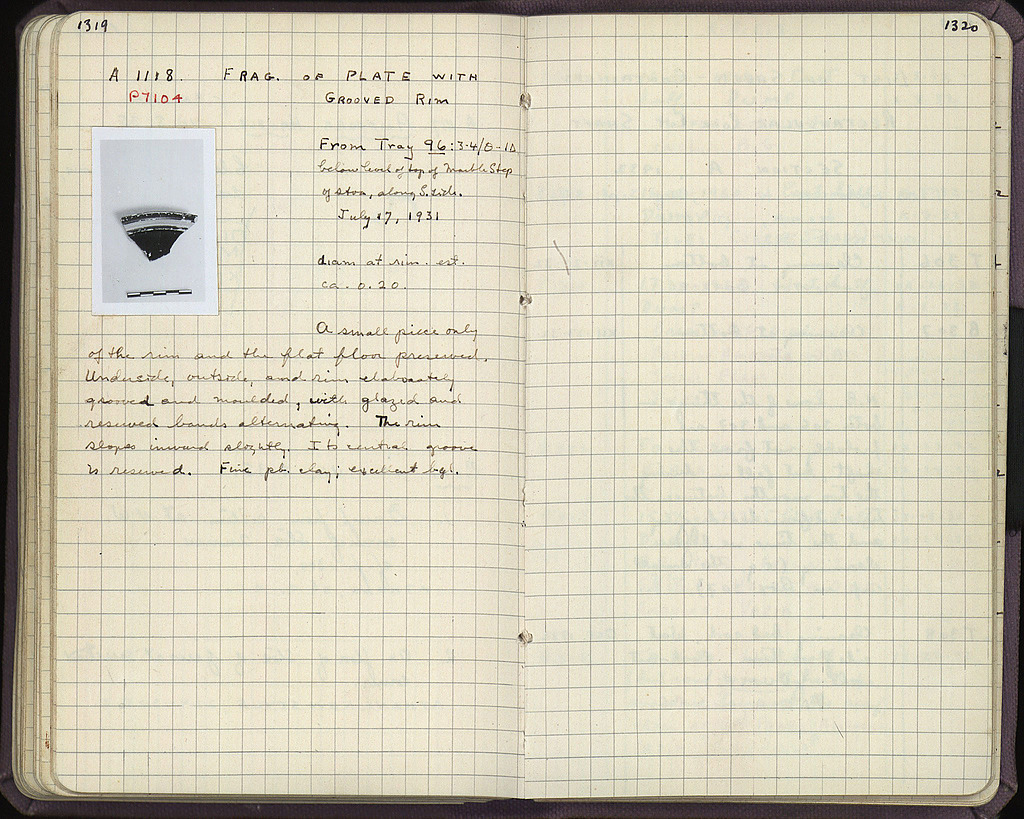 1319
1320
A 1118. FRAG. OF PLATE WITH
P7104 GROOVED RIM
From Tray 96:3-4/
below level of top of Marble Step
of stoa, along S. side.
July 17, 1931
diam at rim. est.
ca. 0.20.
A small piece only
of the rim and the flat floor preserved.
Underside, outside, and rim elaborately
grooved and moulded, with glazed and
reserved bands alternating. The rim
slopes inward slightly. Its central groove
is reserved. Fine pk. clay; excellent bgl.